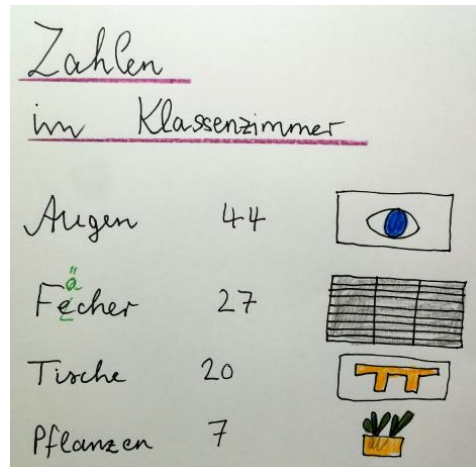 Zahlen
im Klassenzimmer
Augen 44
ä
Fecher 27
Tische 20
Pflanzen 7